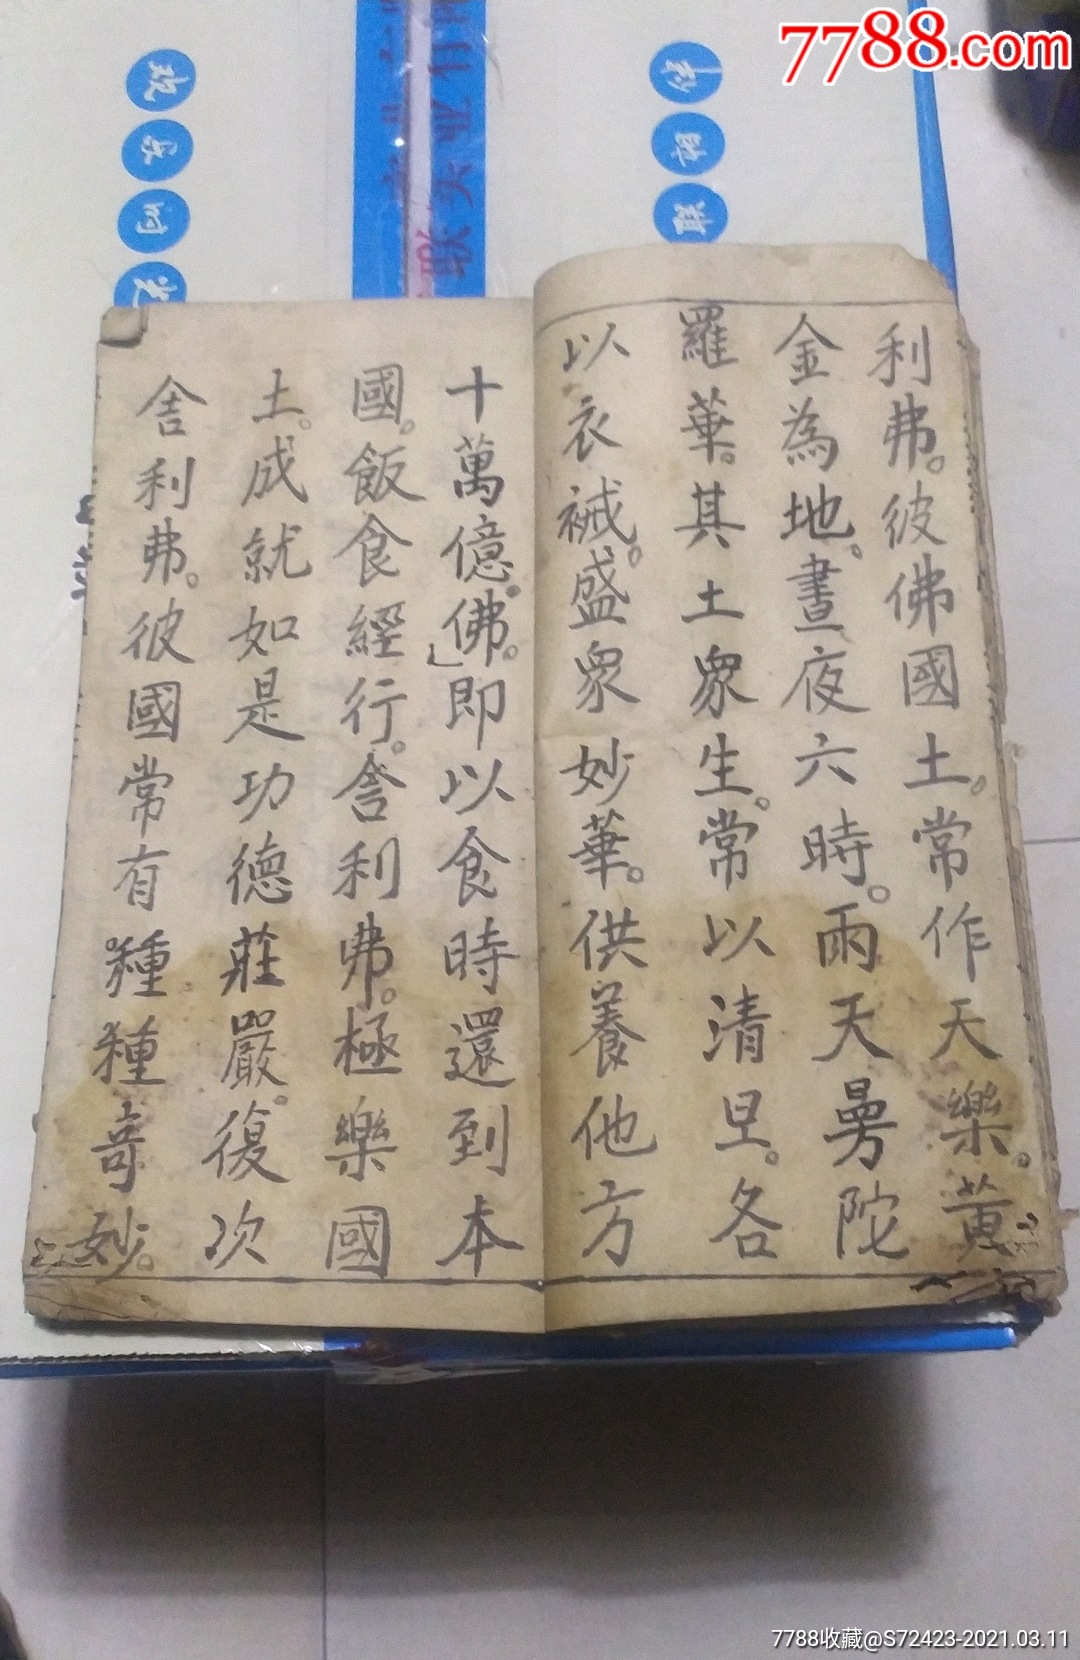 7788.com
利弗。彼佛國土。常作天樂。黄
金為地。晝夜六時。雨天曼陀
羅華。其土眾生。常以清旦。各
以衣裓。盛眾妙華。供養他方
十萬億。佛。即以食時還到本
國。飯食經行。舍利弗。極樂國
土。成就如是功德莊嚴。復次
舍利弗。彼國常有種種奇妙。
7788收藏@S72423-2021.03.11